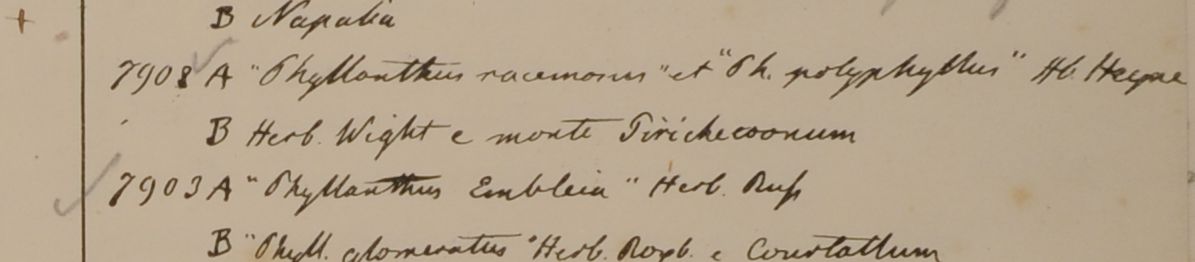 B Napalia
7908 A "Phyllanthus racemosus" et "Ph. polyphyllus" Hb. Heyne
B Herb. Wight e monte Tirichecoonum
7903 A "Phyllanthus Embleia" Herb. Russ
B "Phyll. glomeratus" Herb. Roxb. e Courtallum